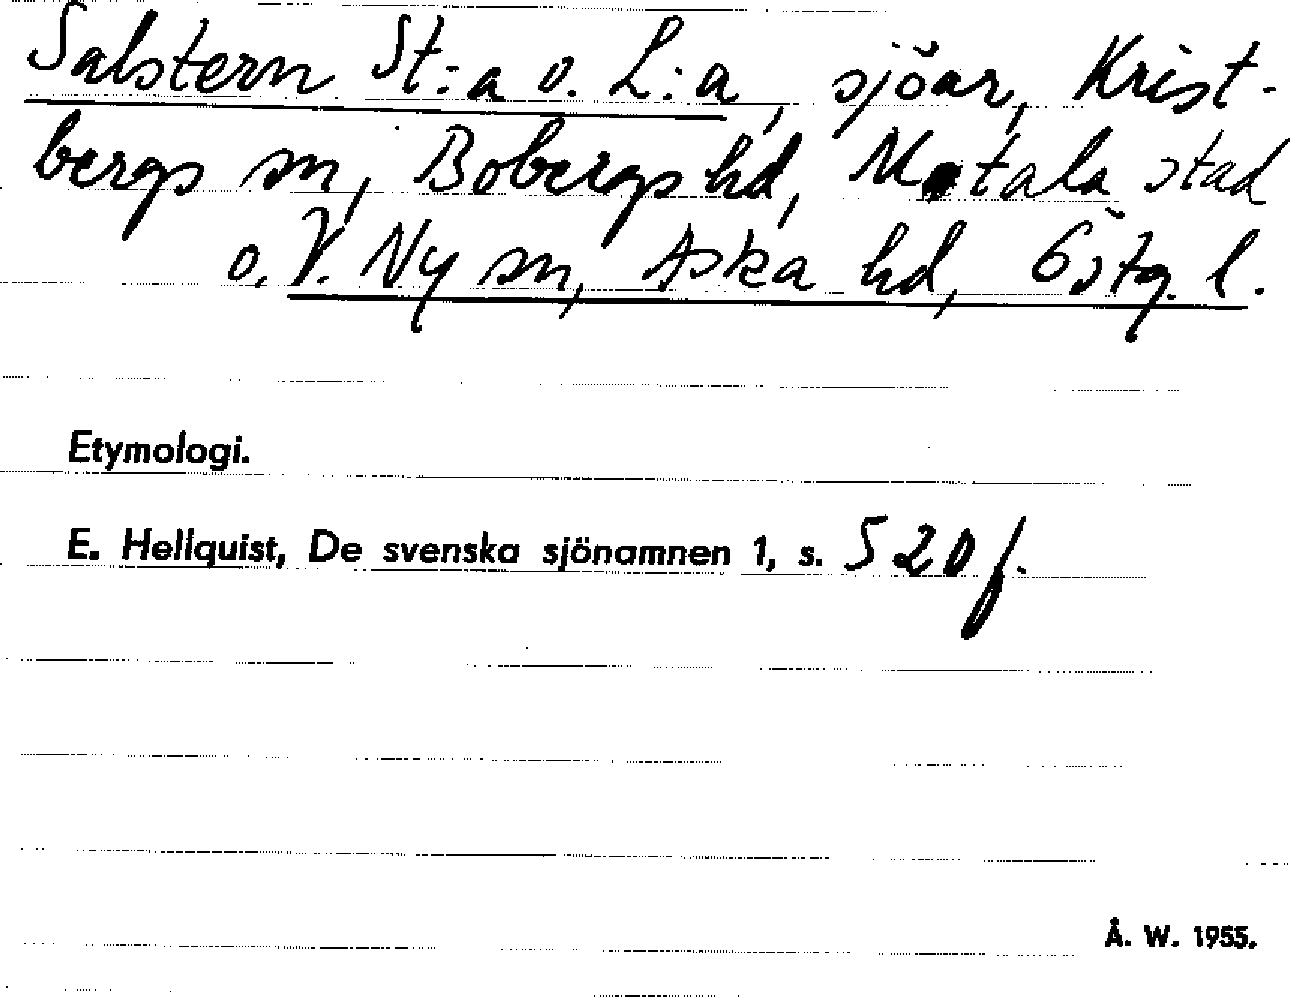 Salstern St:a o. L:a, sjöar, Krist-
bergs sn, Bobergs hd, Motala stad
o. V. Ny sn, Aska hd, Östg. l.
Etymologi.
E. Hellquist, De svenska sjönamnen 1, s. 520 f.
Å. W. 1955.